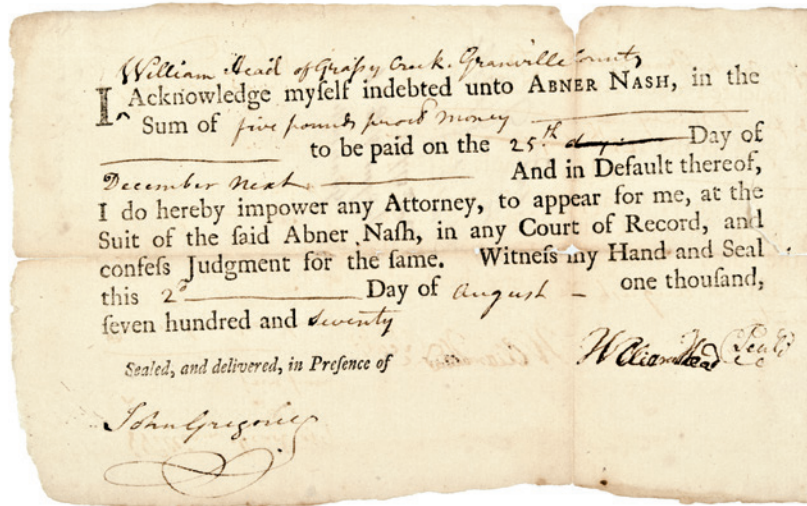 William Head of Graſsy Creek. Granville County
I ^ Acknowledge myſelf indebted unto ABNER NASH, in the
Sum of five pounds procd money
to be paid on the 25.th day Day of
December next And in Default thereof,
I do hereby impower any Attorney, to appear for me, at the
Suit of the ſaid Abner Naſh, in any Court of Record, and
confeſs Judgment for the ſame. Witneſs my Hand and Seal
this 2d Day of august one thouſand,
ſeven hundred and Seventy
Sealed, and delivered, in Preſence of
William Head Seal'd
John Gregorie